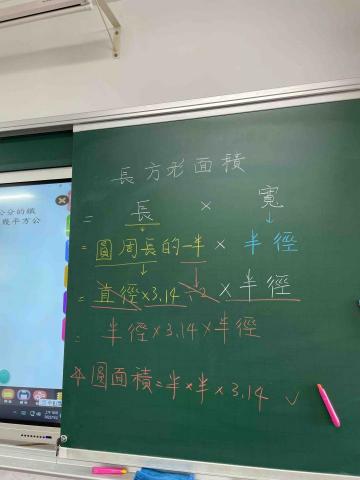 長方形面積
= 長 × 寬
= 圓周長的一半 × 半徑
= 直徑×3.14÷2×半徑
= 半徑×3.14×半徑
圓面積=半×半×3.14
公分的鐵
幾平方公